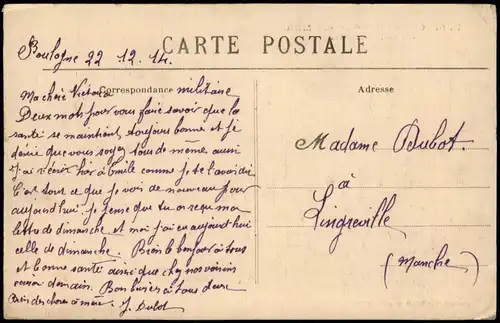 Boulogne 22.12.14.
CARTE POSTALE
Correspondance militaire
Adresse
Ma chère Victoria
Deux mots pour vous faire savoir que la
santé se maintient toujours bonne et je
désire que vous soyez tous de même aussi
J'ai écrit hier à Emile comme je te l'avais dit
C'est tout ce que je vois de nouveau pour
aujourd'hui. Je pense que tu as reçu ma
lettre de dimanche et moi j'ai eu aujourd'hui
celle de dimanche. Bien le bonjour à tous
et bonne santé ainsi que chez nos voisins
demain. Bons baisers à tous deux
Bien des choses à J. Dubot
Madame Dubot.
à
Lingreville
(Manche)